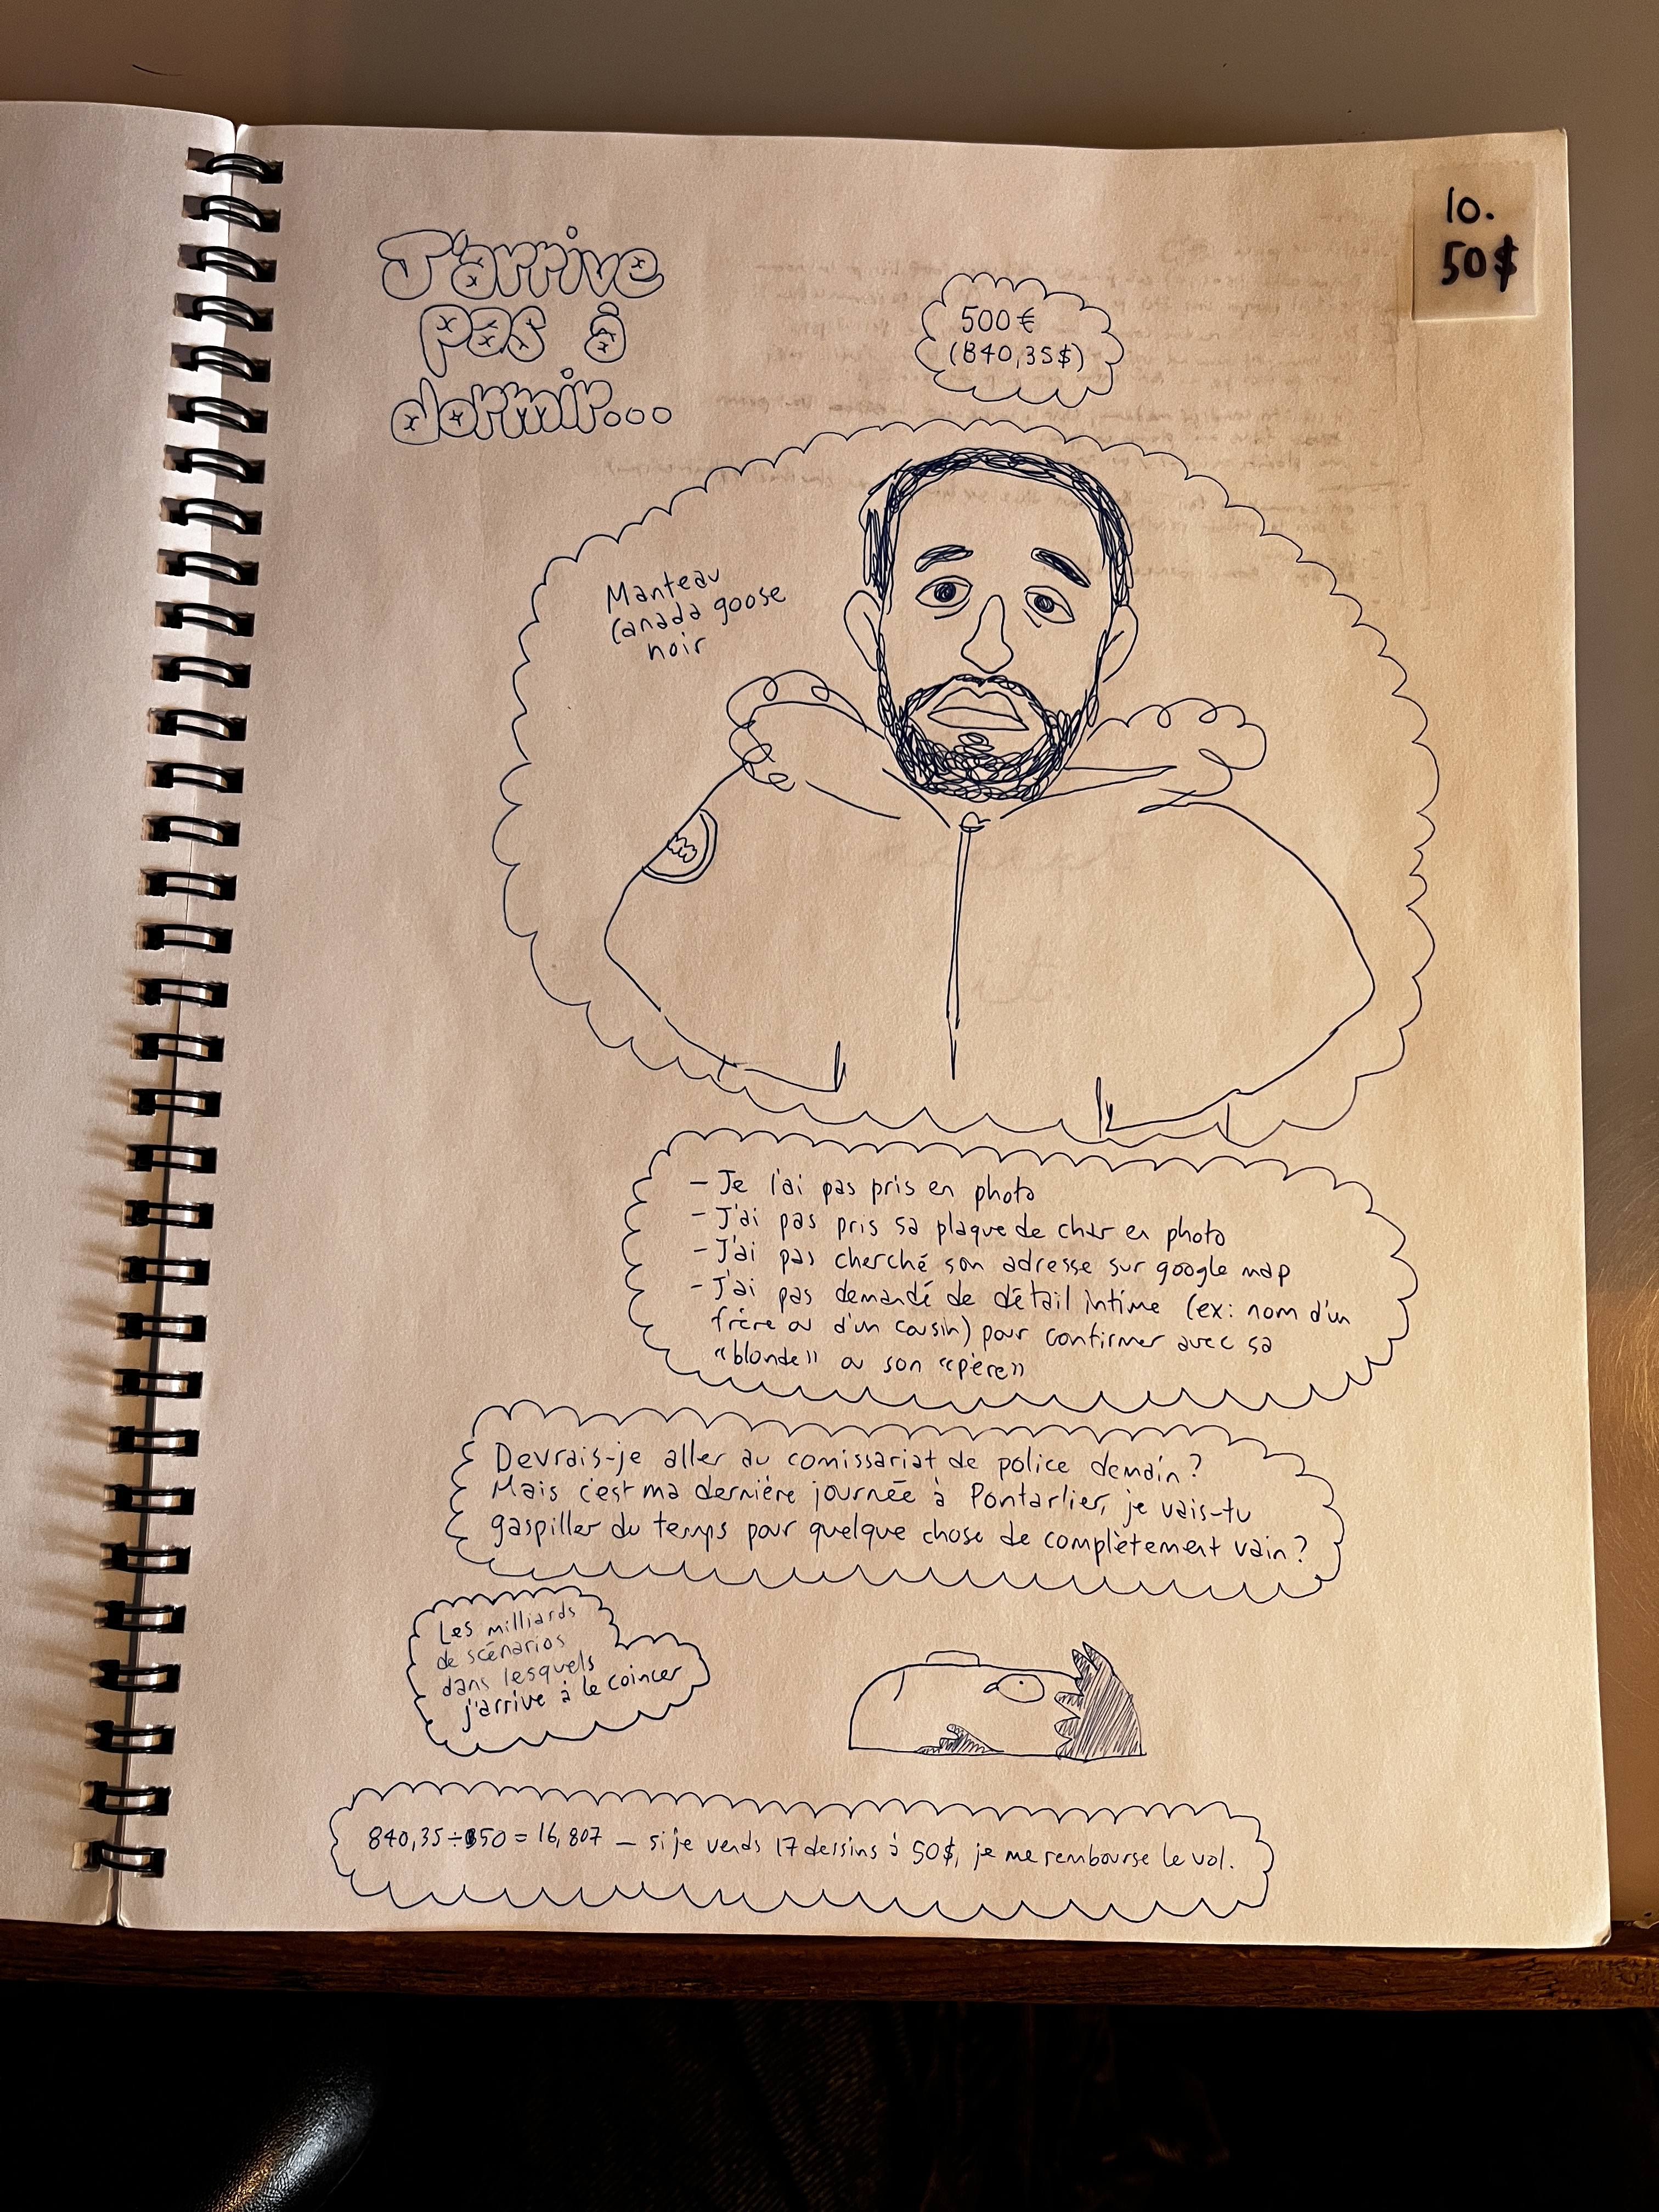 10.
50$
J'arrive
pas à
dormir...
500€
(840,35$)
Manteau
Canada goose
noir
- Je l'ai pas pris en photo
- J'ai pas pris sa plaque de char en photo
- J'ai pas cherché son adresse sur google map
- J'ai pas demandé de détail intime (ex: nom d'un
frère ou d'un cousin) pour confirmer avec sa
"blonde" ou son "père"
Devrais-je aller au comissariat de police demain?
Mais c'est ma dernière journée à Pontarlier, je vais-tu
gaspiller du temps pour quelque chose de complètement vain?
Les milliards
de scénarios
dans lesquels
j'arrive à le coincer
840,35÷50 = 16,807 — si je vends 17 dessins à 50$, je me rembourse le vol.